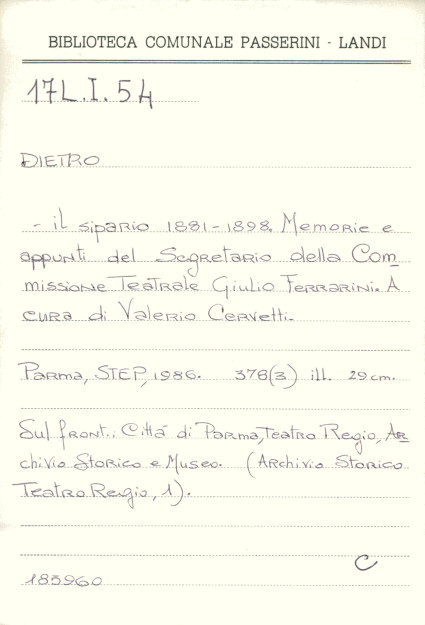 BIBLIOTECA COMUNALE PASSERINI - LANDI
17L.I.54
DIETRO
- il sipario 1881-1898. Memorie e
appunti del Segretario della Com
missione Teatrale Giulio Ferrarini. A
cura di Valerio Cervetti.
Parma, STEP, 1986. 378(3) ill. 29 cm.
Sul front.: Cittá di Parma, Teatro Regio, Ar
chivio Storico e Museo. (Archivio Storico
Teatro Regio, 1).
C
183960